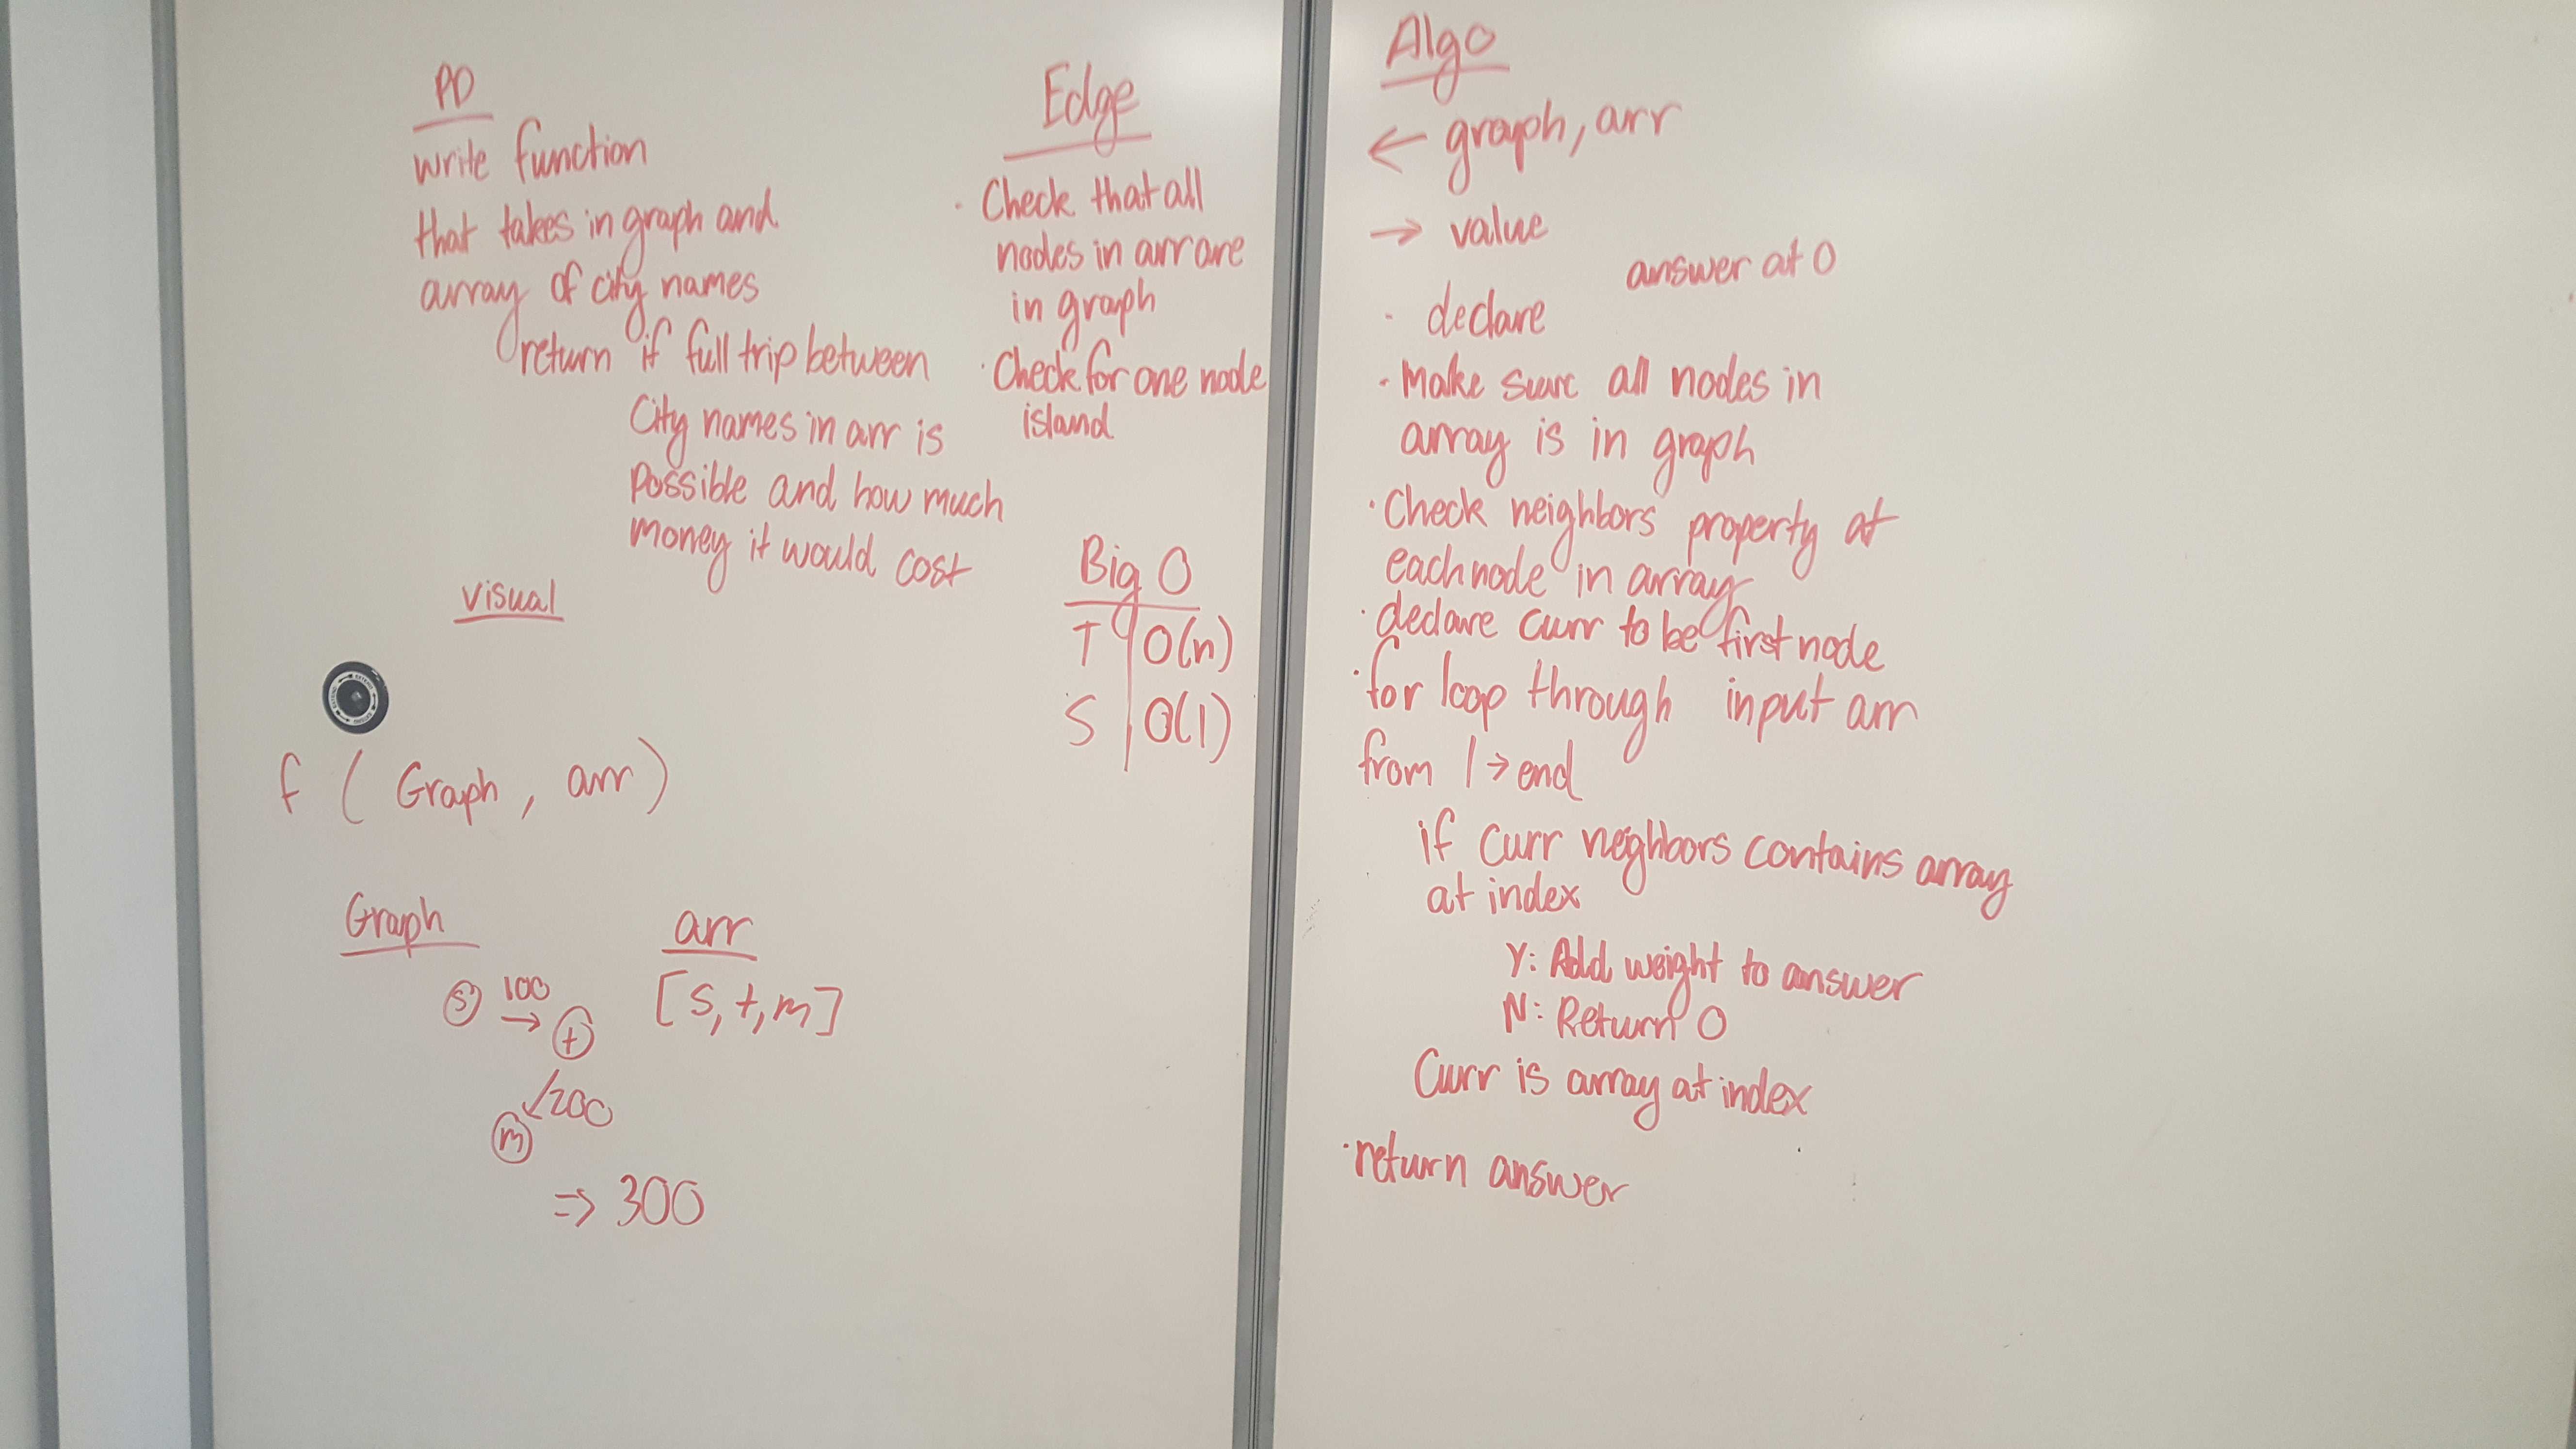 PD
write function
that takes in graph and
array of city names
return if full trip between
City names in arr is
possible and how much
money it would cost
visual
f ( Graph, arr )
Graph
S 100
→ t
↙200
m
⇒ 300
arr
[S, t, m]
Edge
· Check that all
nodes in arr are
in graph
· Check for one node
island
Big O
T | O(n)
S | O(1)
Algo
← graph, arr
→ value
answer at 0
- declare
· Make sure all nodes in
array is in graph
· Check neighbors property at
each node in array
· declare curr to be first node
· for loop through input arr
from 1 → end
if curr neghbors contains array
at index
Y: Add weight to answer
N: Return 0
Curr is array at index
· return answer